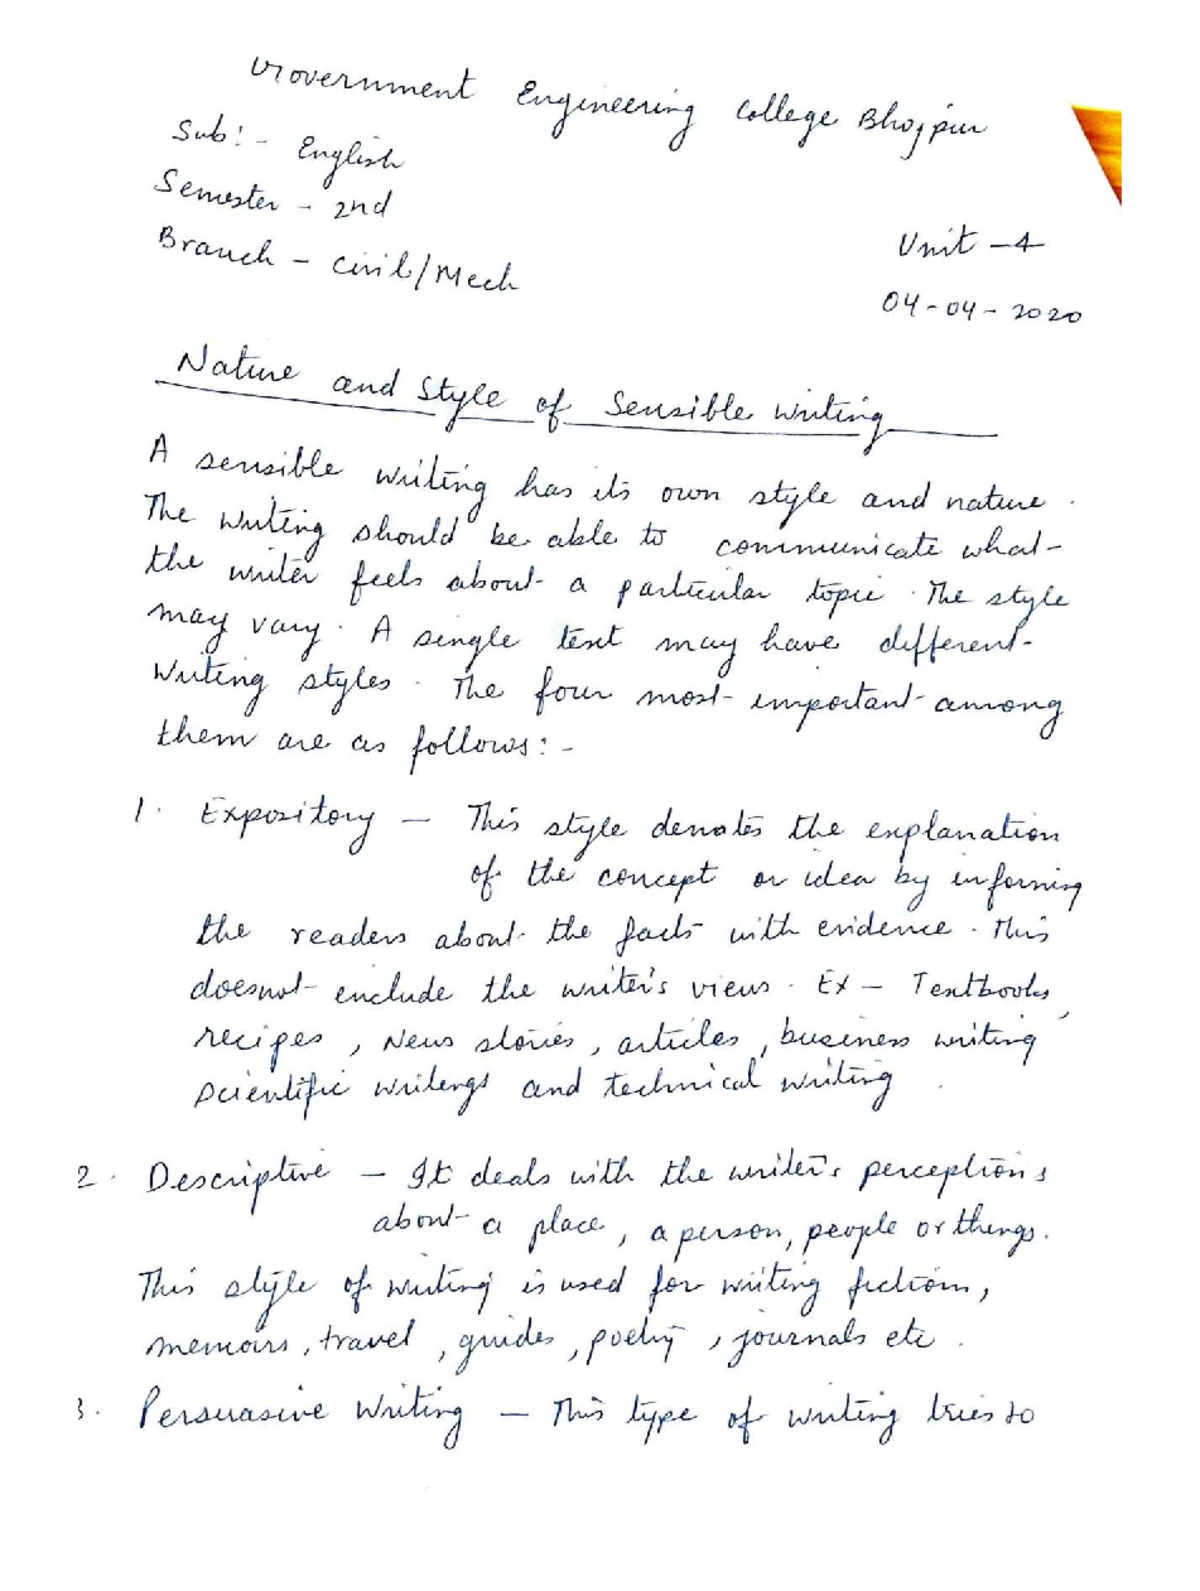 Government Engineering College Bhojpur
Sub:- English
Semester - 2nd
Branch - Civil/Mech
Unit - 4
04-04-2020
Nature and Style of Sensible Writing
A sensible writing has its own style and nature.
The writing should be able to communicate what
the writer feels about a particular topic. The style
may vary. A single text may have different
writing styles. The four most important among
them are as follows:-
1. Expository - This style denotes the explanation
of the concept or idea by informing
the readers about the facts with evidence. This
doesnot include the writer's views. Ex - Textbooks,
recipes, News stories, articles, business writing
scientific writings and technical writing.
2. Descriptive - It deals with the writer's perceptions
about a place, a person, people or things.
This style of writing is used for writing fictions,
memoirs, travel, guides, poetry, journals etc.
3. Persuasive Writing - This type of writing tries to